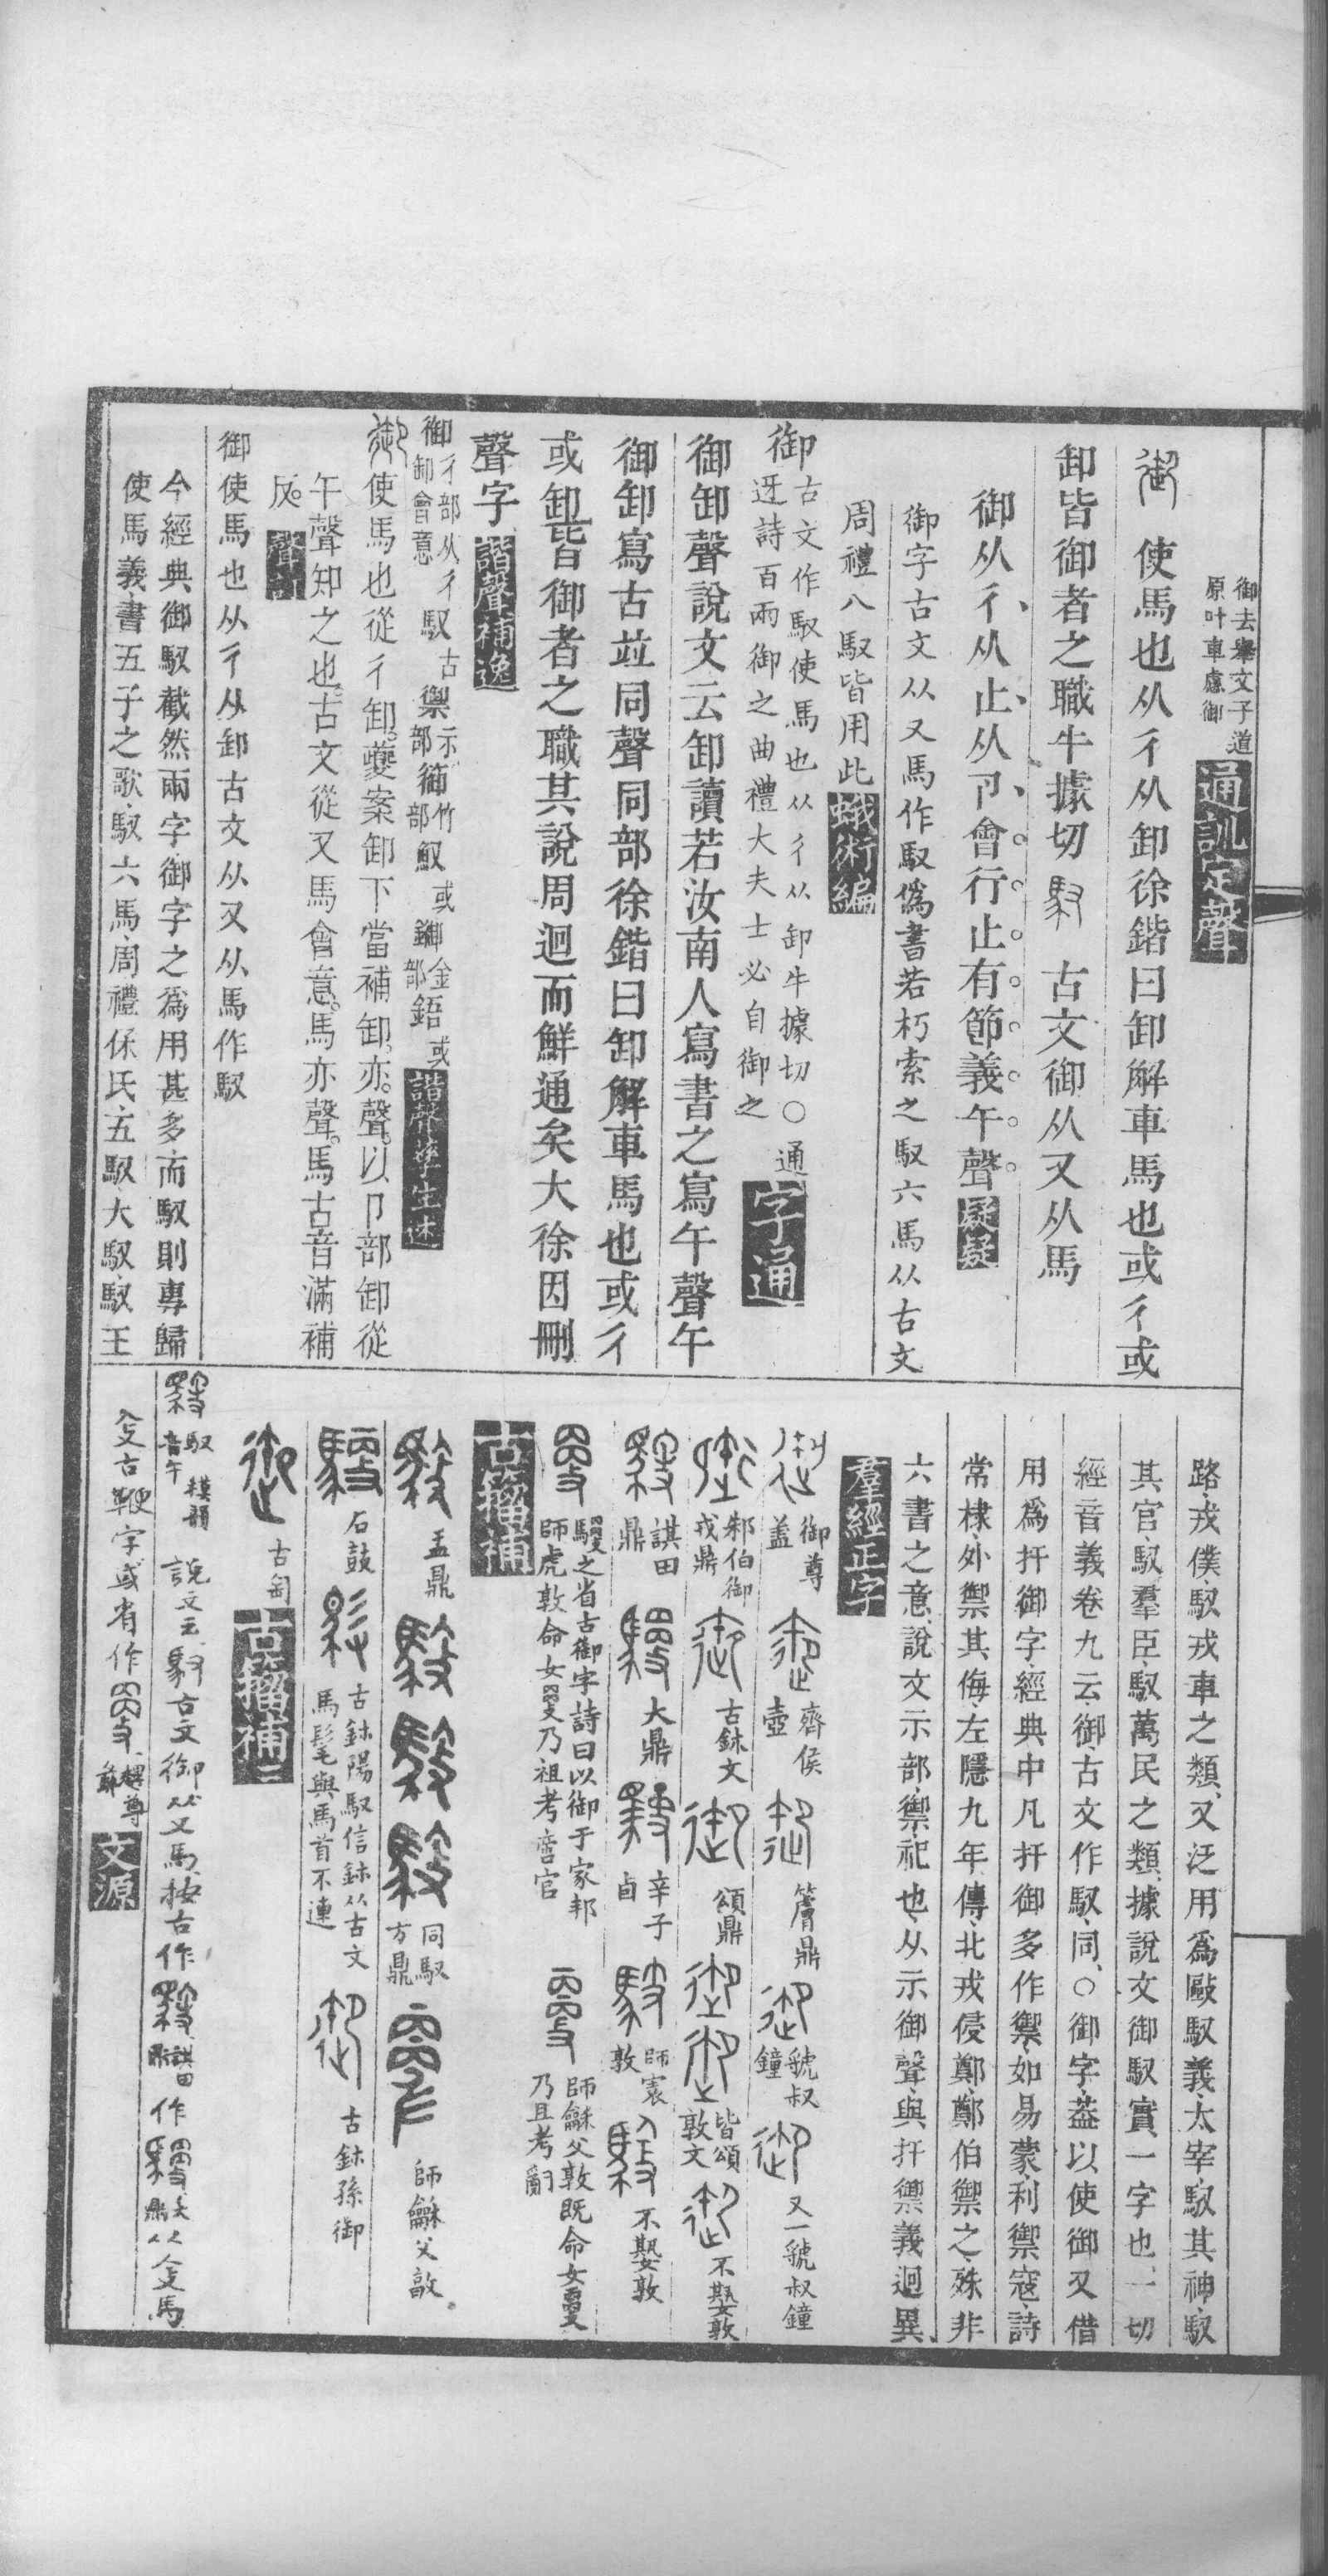 御去舉文子道
原叶車慮御
通訓定聲
使馬也从彳从卸徐鍇曰卸解車馬也或彳或
卸皆御者之職牛據切 古文御从又从馬
御从彳从止从卪會行止有節義午聲疑疑
御字古文从又馬作馭僞書若朽索之馭六馬从古文
周禮八馭皆用此蛾術編
御古文作馭使馬也从彳从卸牛據切〇通
迓詩百兩御之曲禮大夫士必自御之
字通
御卸聲說文云卸讀若汝南人寫書之寫午聲午
御卸寫古竝同聲同部徐鍇曰卸解車馬也或彳
或卸皆御者之職其說周迴而鮮通矣大徐因刪
聲字諧聲補逸
御彳部从彳卸會意馭古禦示部篽竹部䱷或鋙金部鋙或諧聲孳生述
使馬也從彳卸夔案卸下當補卸亦聲以卩部卸從
午聲知之也古文從又馬會意馬亦聲馬古音滿補
反
御使馬也从彳从卸古文从又从馬作馭
今經典御馭截然兩字御字之爲用甚多而馭則專歸
使馬義書五子之歌馭六馬周禮保氏五馭大馭馭王
路戎僕馭戎車之類又泛用爲敺馭義太宰馭其神馭
其官馭羣臣馭萬民之類據說文御馭實一字也一切
經音義卷九云御古文作馭同〇御字葢以使御又借
用爲扞御字經典中凡扞御多作禦如易蒙利禦寇詩
常棣外禦其侮左隱九年傳北戎侵鄭鄭伯禦之殊非
六書之意說文示部禦祀也从示御聲與扞禦義迥異
羣經正字
御尊蓋 齊侯壺 簷鼎 虢叔鐘 又一虢叔鐘
邾伯御戎鼎 古鉥文 頌鼎 皆頌敦文 不䙺敦
諆田鼎 大鼎 辛子卣 師㝨敦 不䙺敦
之省古御字詩曰以御于家邦
師虎敦命女乃祖考啻官
師龢父敦既命女
乃且考
古籀補
盂鼎 同馭方鼎 師龢父敦
石鼓 古鉥陽馭信鉥从古文馬髦與馬首不連 古鉥孫御
古匋 古籀補
馭音午 模韻 說文云古文御从又馬按古作諆田鼎作大鼎从馬
古鞭字或省作尊文源